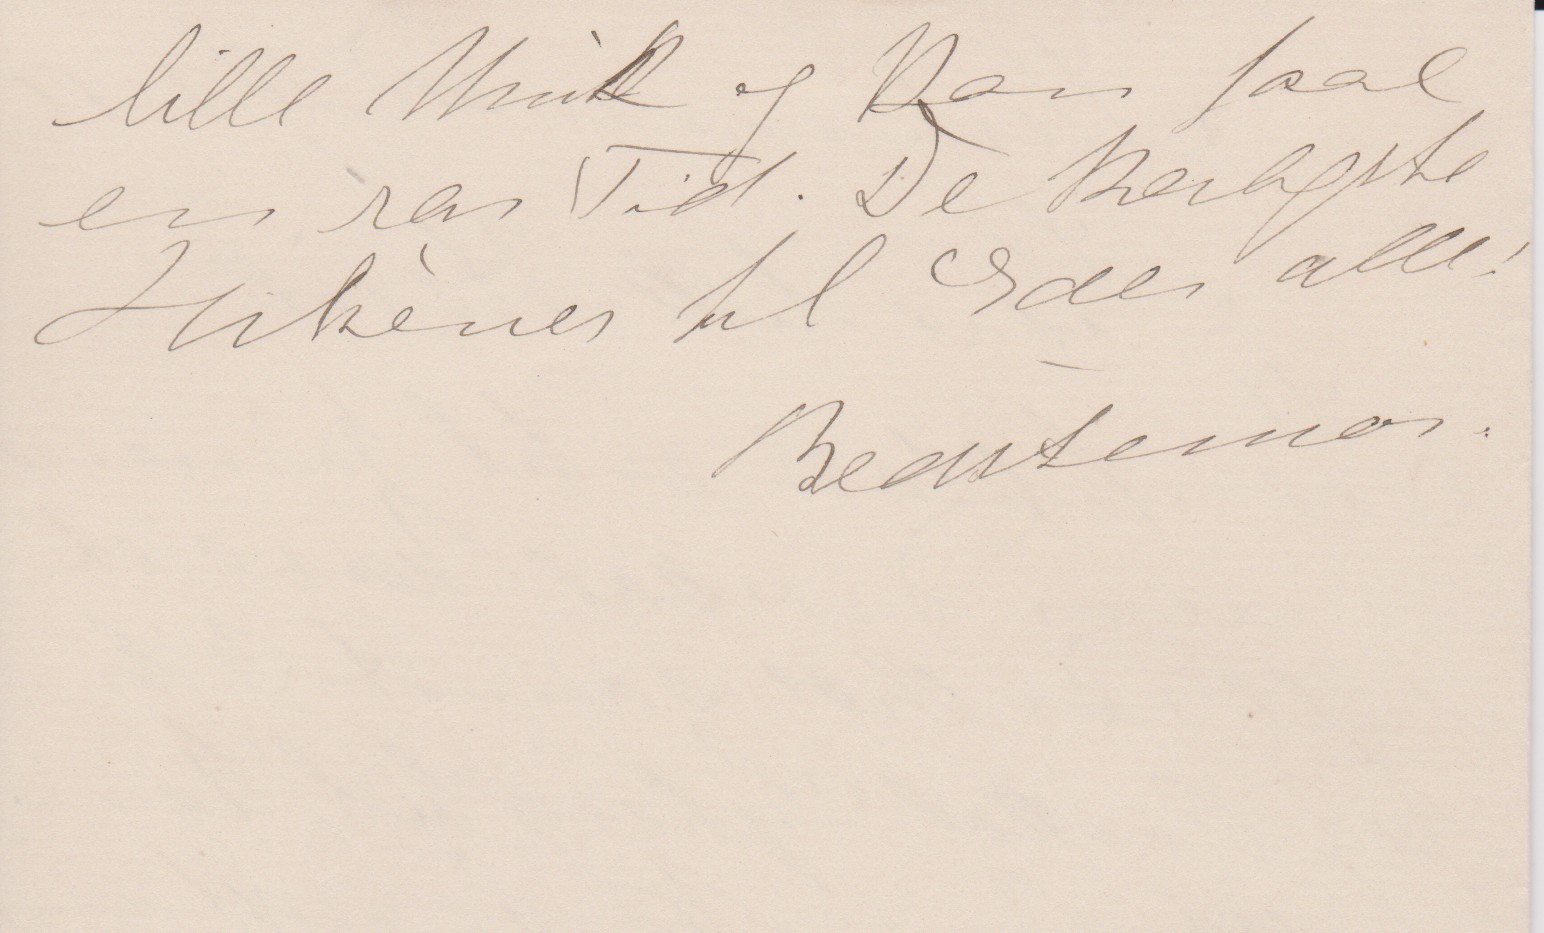 lille Musik og Kan faae
en rar Tid. De kærligste
Hilsener til Eder alle!
Bedstemor.